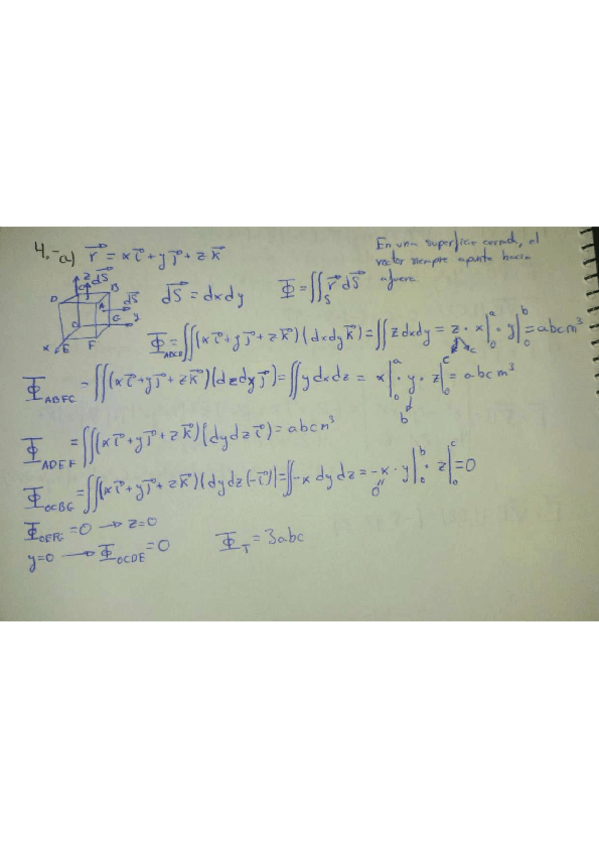 4.- a) r⃗ = x i⃗ + y j⃗ + z k⃗
En una superficie cerrada, el
vector siempre apunta hacia
afuera
z dS⃗
D B
A dS⃗
G y
x E F
dS⃗ = dxdy Φ = ∬_S r⃗ dS⃗
Φ_ABCD = ∬(x i⃗ + y j⃗ + z k⃗)(dxdy k⃗) = ∬ z dxdy = z · x|₀ᵃ · y|₀ᵇ = abc m³
c
Φ_ABFG = ∬(x i⃗ + y j⃗ + z k⃗)(dzdx j⃗) = ∬ y dxdz = x|₀ᵃ · y · z|₀ᶜ = abc m³
b
Φ_ADEF = ∬(x i⃗ + y j⃗ + z k⃗)(dydz i⃗) = abc m³
Φ_OCBG = ∬(x i⃗ + y j⃗ + z k⃗)(dydz(-i⃗)) = ∬ -x dydz = -x · y|₀ᵇ · z|₀ᶜ = 0
0
Φ_OEFG = 0 → z = 0
y = 0 → Φ_OCDE = 0 Φ_T = 3abc